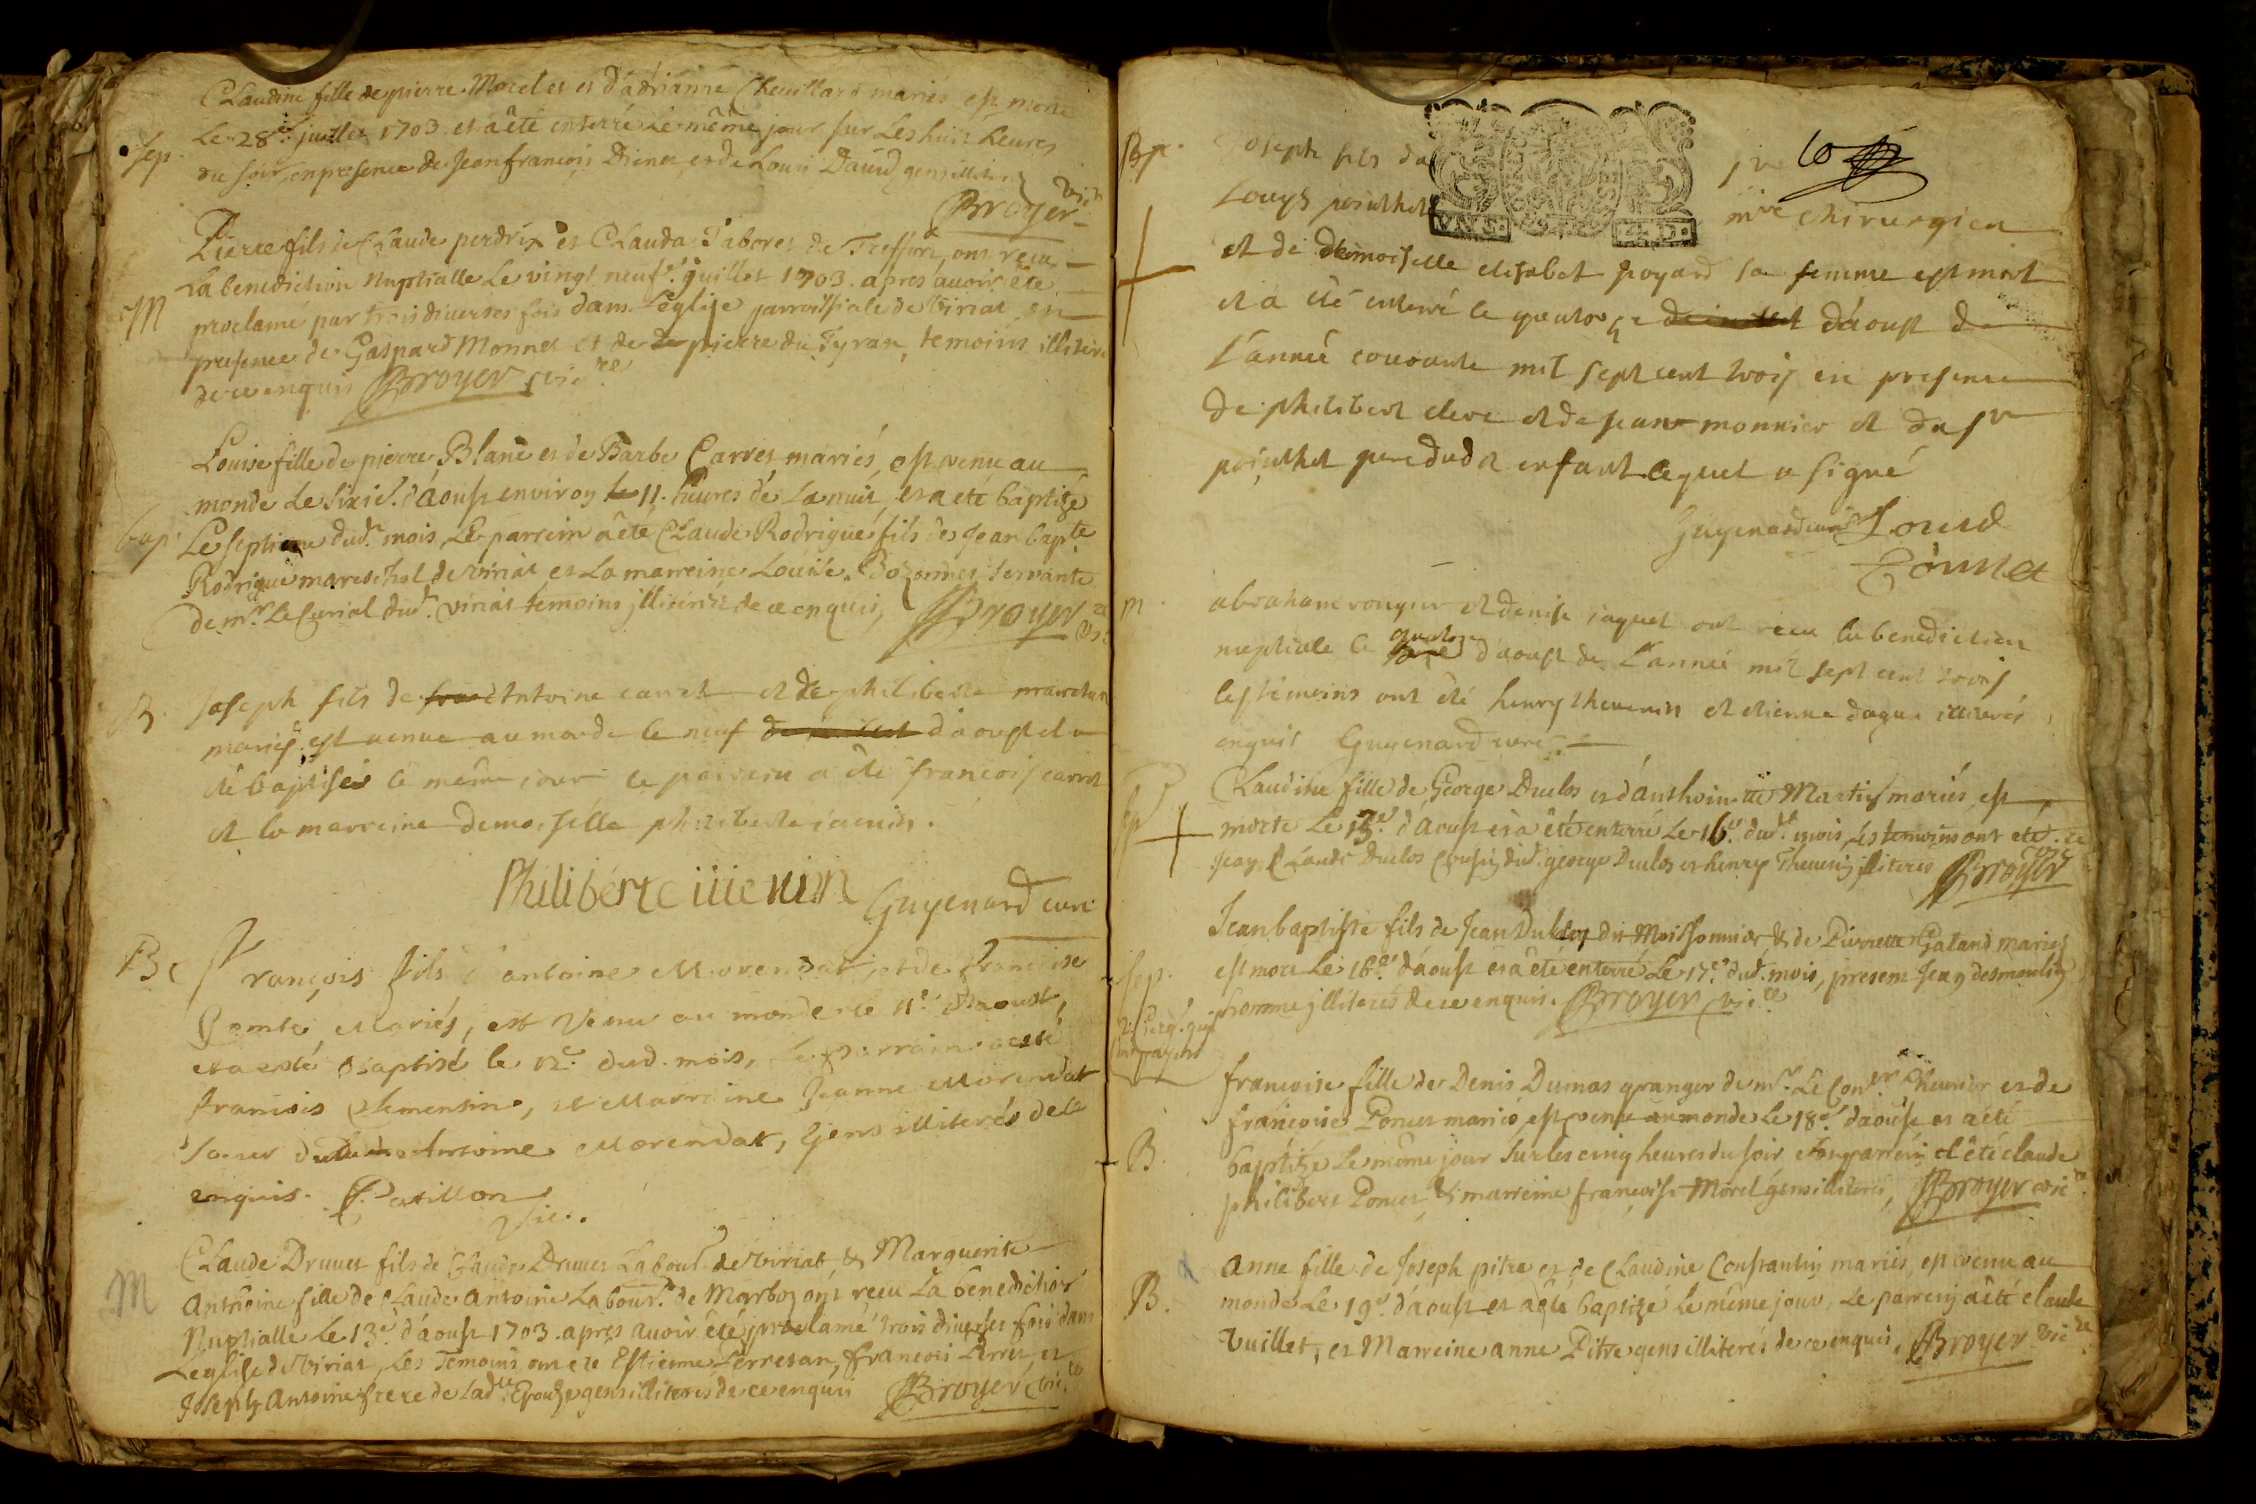 Claudine fille de pierre Morel et d'adrianne Chevillard mariés est morte
Sep. Le 28e juillet 1703 et a été enterré Le même jour sur Les huit heures
du soir, en presence de Jean francois Dienet, et de Louis David gens illiteres
Broyer vic
Pierre fils de Claude perdrix et Clauda Tabouret de Treffort, ont receu
La benediction Nuptialle Le vingt neufe juillet 1703. apres avoir été
M proclame par trois diverses fois dans L'eglise parroissiale de Viriat, en
presence de Gaspard Monnet et de pierre du Tyran, temoins illiteré
de ce enquis Broyer vicre
Louise fille de pierre Blanc et de Barbe Carret, mariés, est venu au
monde Le sixie. d'aoust environ le 11. heures de La nuit, et a eté baptizé
bap. Le septieme dud. mois, Le parrein a été Claude Rodrigue fils de Jean bapte
Rodrigue mareschal de viriat et La marreine Louise servante
de mr. Le Curial dud. viriat temoins illiterés de ce enquis, Broyer vicre
B. Joseph fils de Antoine carret et de philiberte
mariés est venue au monde le neuf d'aoust et a
été baptisés le même jour le parrein a été francois carret
et la marreine demoiselle philiberte
Philiberte
Guyenard curé
B. François fils d'antoine Morendat, et de françoise
Comte, Mariés, est venu au monde le 11e d'aoust,
et a esté Baptisé le 12e dud. mois, Le parrain a esté
francois Clementin, et Marraine Jeanne Morendat
soeur dud. Antoine Morendat, Gens illiterés de ce
enquis. Catillon
Vic.
Claude Druet fils de Claude Druet Labour. de Viriat, & Marguerite
M Antoine fille de Claude Antoine Labour. de Marboz ont receu La benediction
Nuptialle Le 13e d'aoust 1703. apres avoir été proclamé trois diverses fois dans
L'eglise de Viriat, Les Temoins ont ete Estienne Perretan, francois Perret, et
Joseph Antoine frere de Ladte Epouze gens illiteres de ce enquis Broyer vicre
Sep. Joseph fils du sr
Louys mre chirurgien
et de demoiselle elisabet poyard sa femme est mort
et a été enterré le quatorze d'aoust de
l'année courante mil sept cent trois en presence
de philibert clerc et de jean monnier et du sr
pere dudt enfant lequel a signé
Guyenard curé Louis
m. abraham rouyer et denise jaquet ont receu la benediction
nuptiale le quatorze d'aoust de l'année mil sept cent trois
les témoins ont été henry thevenin et etienne dagu illiterés
enquis Guyenard curé
Sep Claudine fille de George Duclos et d'anthoinette Martin mariés, est
morte Le 15e d'aoust et a été enterré Le 16e dudt mois, Les temoins ont eté
Jean Claude Duclos cousin dud. george Duclos et henry Thevenin illiteres Broyer vicre
Jean baptiste fils de Jean Duclos dit Moissonnier & de Pierrette Galand mariés
Sep. est mort Le 16e d'aoust et a été enterré Le 17e dud. mois, present Jean desmoulin
homme illiterés de ce enquis. Broyer vicre
francoise fille de Denis Dumas granger de mr. Le Coner. et de
francoise Poncet mariés, est venue au monde Le 18e d'aoust et a été
B. baptizé Le même jour Sur les cinq heures du soir son parrein a été claude
philibert Poncet, & marreine francoise Morel gens illiteres, Broyer vicre.
Anne fille de Joseph pitre et de Claudine Constantin mariés, est venu au
B. monde Le 19e d'aoust et a été baptizé Le même jour, Le parrein a été claude
Vuillet, et Marreine anne Pitre gens illiterés de ce enquis, Broyer vicre